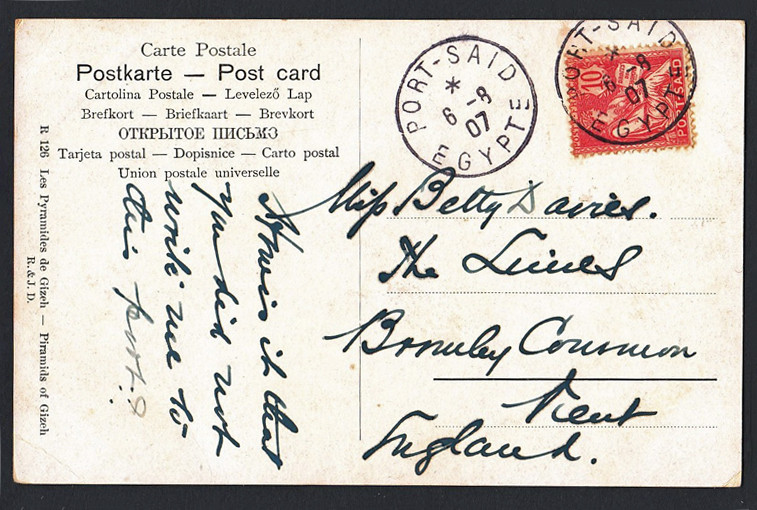 Carte Postale
Postkarte — Post card
Cartolina Postale — Levelező Lap
Brefkort — Briefkaart — Brevkort
ОТКРЫТОЕ ПИСЬМО
Tarjeta postal — Dopisnice — Carto postal
Union postale universelle
R 126 Les Pyramides de Gizeh — Piramids of Gizeh
R. & J. D.
How is it that
you did not
write me to
this port?
PORT-SAID
*
6 -8
07
EGYPTE
PORT-SAID
*
6 -8
07
EGYPTE
10
PORT-SAID
Miss Betty Davies.
The Limes
Bromley Common
Kent
England.